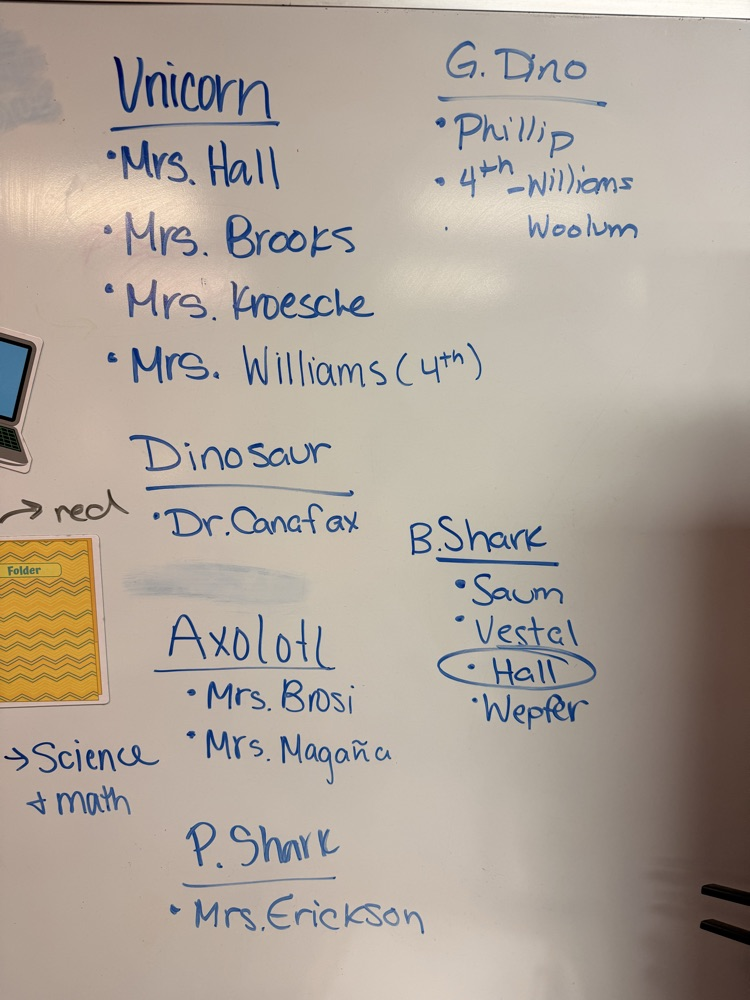 Unicorn
•Mrs. Hall
•Mrs. Brooks
•Mrs. Kroesche
•Mrs. Williams (4th)
G. Dino
•Phillip
•4th-Williams
Woolum
Dinosaur
•Dr. Canafax
→ red
Folder
Axolotl
•Mrs. Brosi
•Mrs. Magaña
B. Shark
•Saum
•Vestal
•Hall
•Wepfer
→ Science
+ math
P. Shark
•Mrs. Erickson